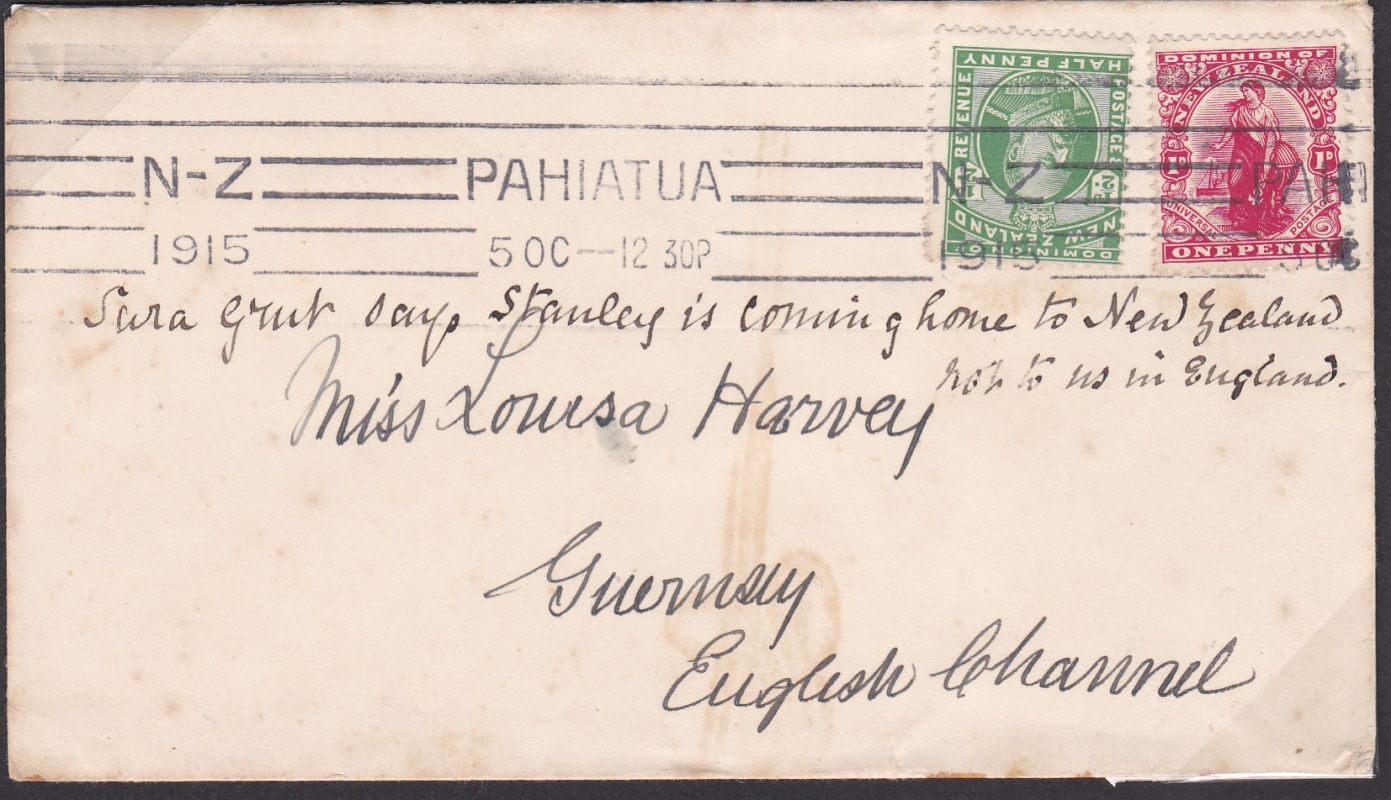 DOMINION OF
NEW ZEALAND
POSTAGE &
REVENUE
HALF PENNY
DOMINION OF
NEW ZEALAND
UNIVERSAL POSTAGE
ONE PENNY
N-Z PAHIATUA N-Z PAHI
1915 5 OC — 12 30P 1915 5 OC
Sara Grut says Stanley is coming home to New Zealand
not to us in England.
Miss Louisa Harvey
Guernsey
English Channel